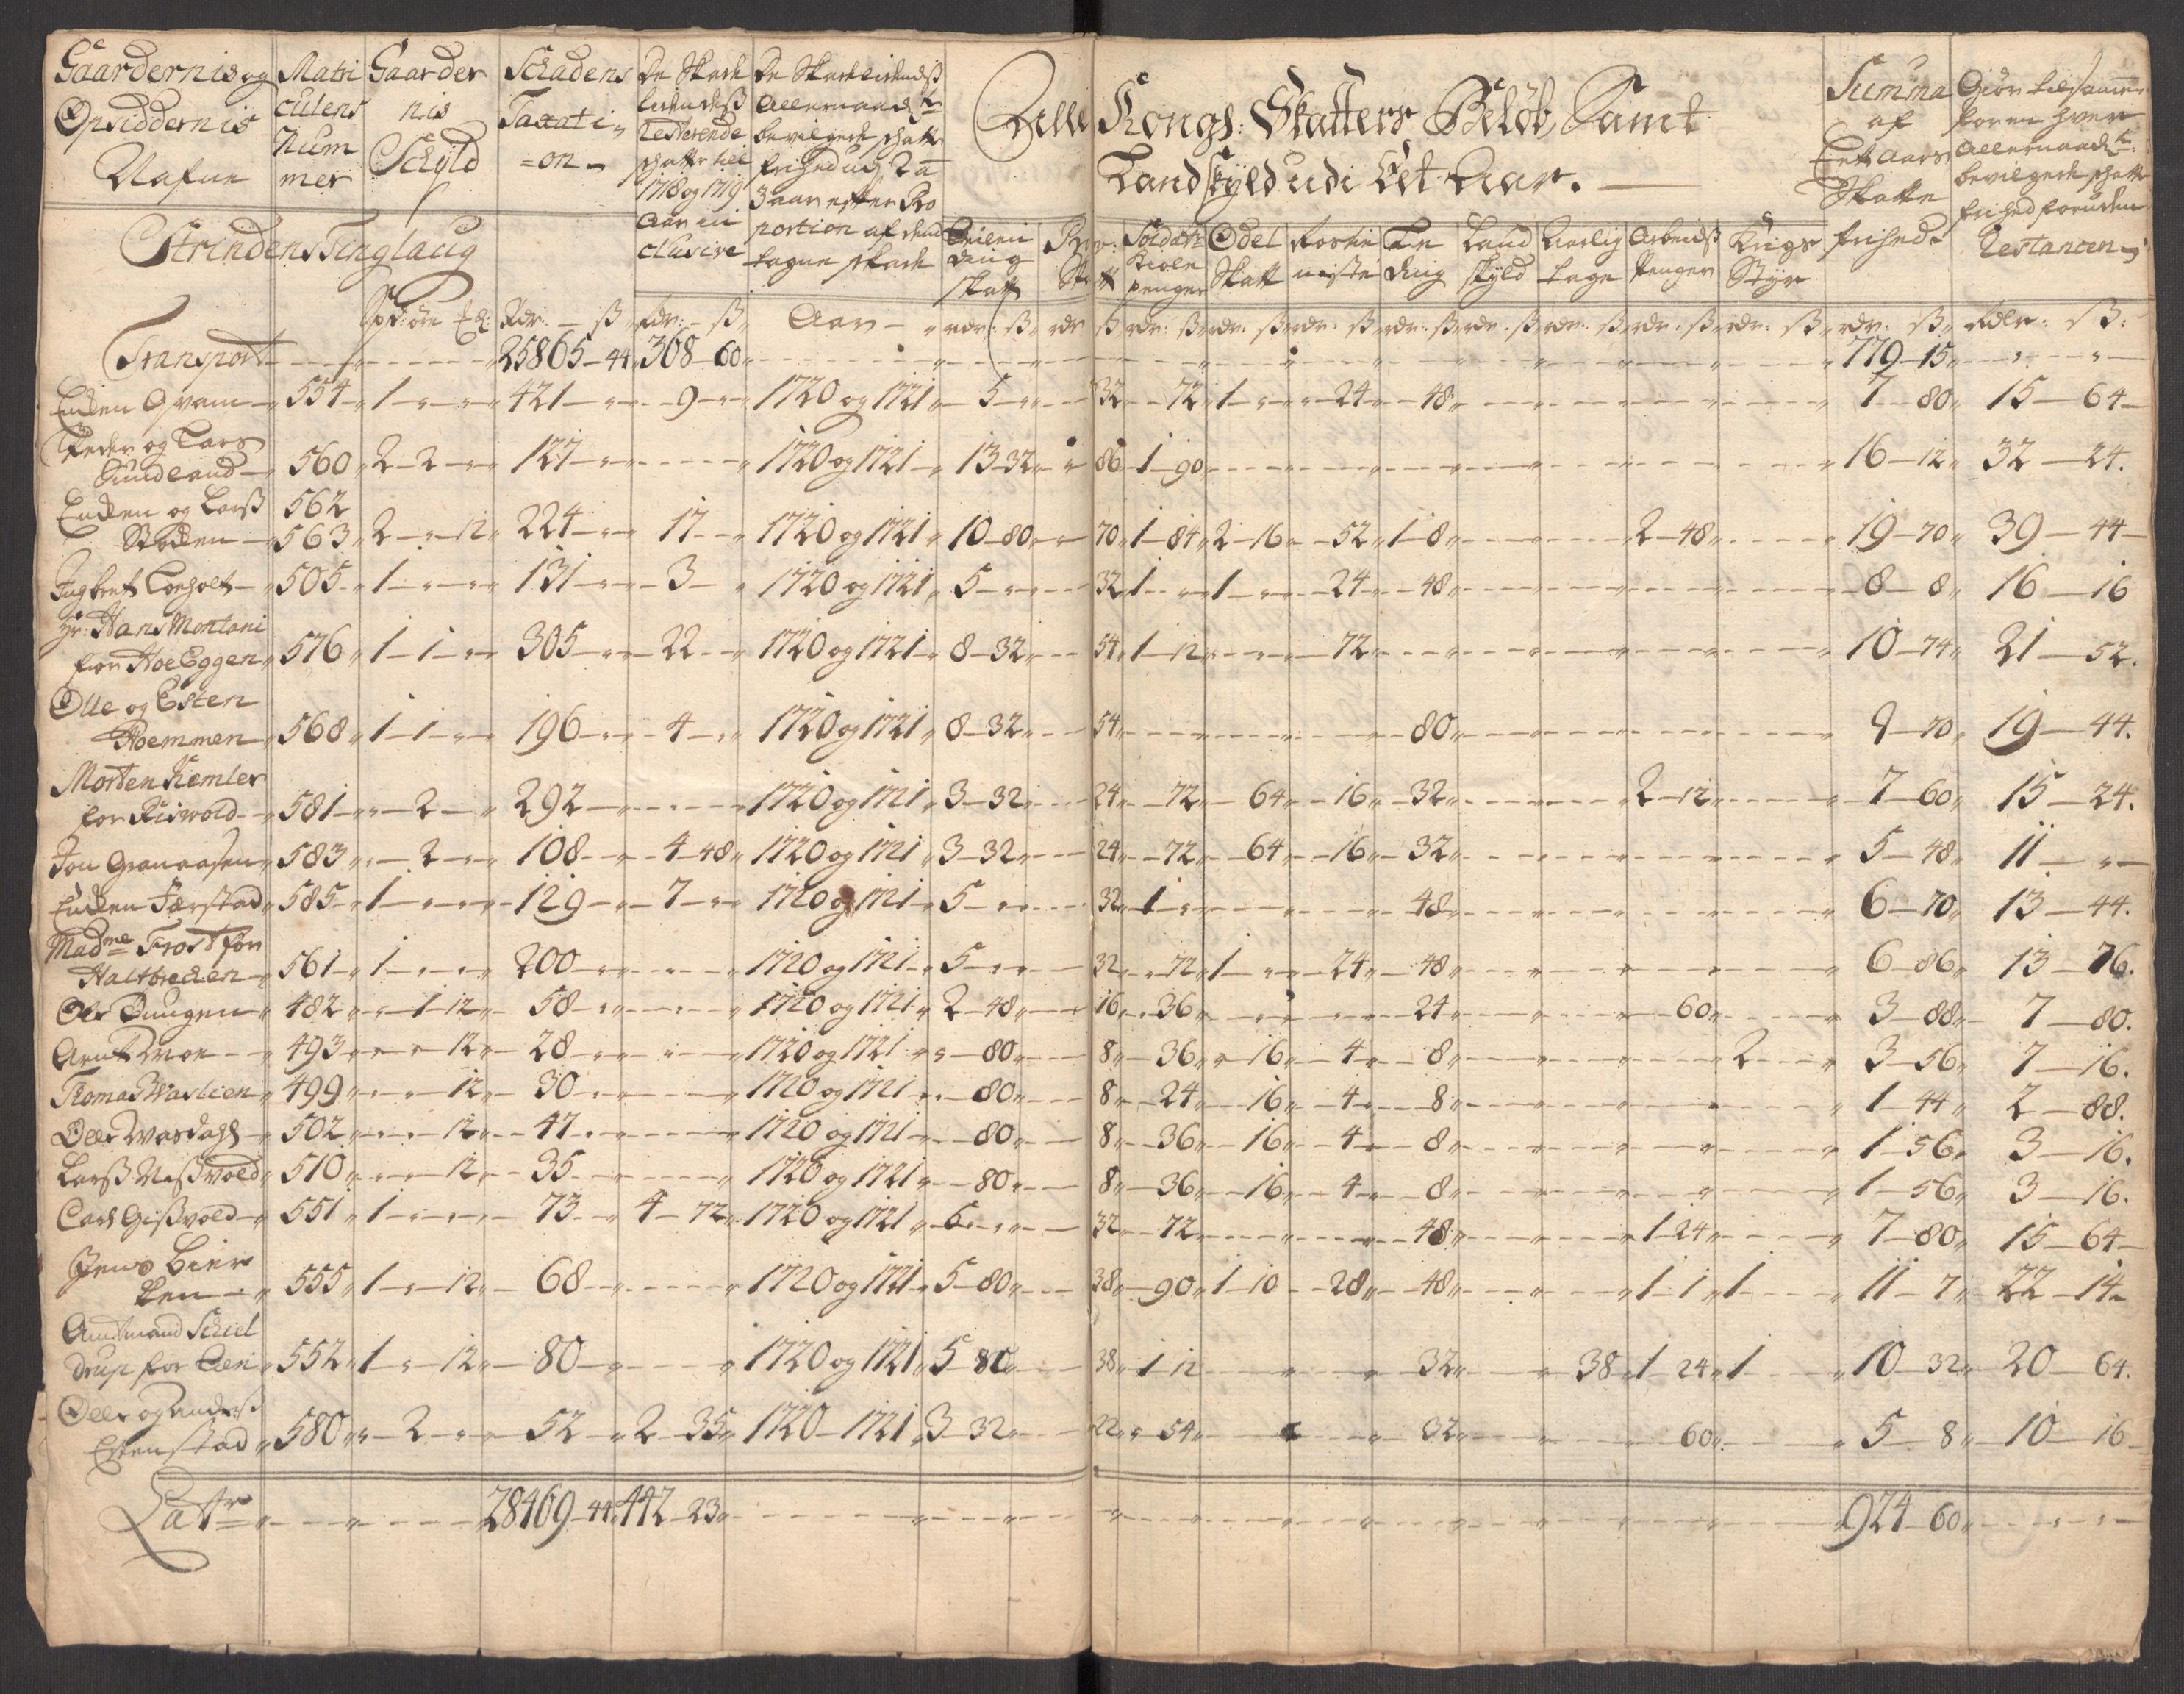 Gaardernis og Opsiddernis Nafne
Matriculens Nummer
Gaardernis Schyld
Schadens Taxation
De Skade lidendsß Resterende schatter till 1718 og 1719 Aar inclusive
De Skadelidendsß Allernaadste bevilgede schatte frihed udj 2 a 3 aar efter Proportion af dend tagne skade
Alle Kongs: Skatters Beløb Samt
Landskyld udi Eet Aar.
Summa af Eet Aars Skatte frihed
Giør tilsamen for en hver Allernaadste bevilgede schatte frihed foruden Restancen
Strindens Tinglaug
skatt
Soldat penger
Odel Skatt
Rostieniste
Leding
Landskyld
Aarlig tage
Arbeids Penger
Krigs Styr
Spd: øre Rdr: ß Rdr: ß Aar rdr: ß rdr ß rdr: ß rdr: ß rdr: ß rdr: ß rdr: ß rdr: ß rdr: ß rdr: ß rdr: ß Rdlr: ß:
Transport 25865 44 308 60 779 15
Endten Qvam 554 1 421 9 1720 og 1721 5 32 72 1 24 48 7 80 15 64
Peder og Lars
Sundland 560 2 2 127 1720 og 1721 13 32 86 1 90 16 12 32 24.
Endten og Larß 562
Stokken 563 2 12 224 17 1720 og 1721 10 80 70 1 84 2 16 52 1 8 2 48 19 70 39 44
Ingbret Loeholt 505 1 131 3 1720 og 1721 5 32 1 1 24 48 8 8 16 16
Hr: Hans Montani
for HoeEggen 576 1 1 305 22 1720 og 1721 8 32 54 1 12 72 10 74 21 52.
Olle og Esten
Hoemmen 568 1 1 196 4 1720 og 1721 8 32 54 80 9 70 19 44.
Morten Kiemler
for Risvold 581 2 292 1720 og 1721 3 32 24 72 64 16 32 2 12 7 60 15 24.
Jon Granaasen 583 2 108 4 48 1720 og 1721 3 32 24 72 64 16 32 5 48 11
Endten Ferstad 585 1 129 7 1720 og 1721 5 32 1 48 6 70 13 44.
Madme Frost for
Haltbrecken 561 1 200 1720 og 1721 5 32 72 1 24 48 6 86 13 76.
Ole Duugen 482 1 12 58 1720 og 1721 2 48 16 36 24 60 3 88 7 80.
Arnt Moe 493 12 28 1720 og 1721 80 8 36 16 4 8 2 3 56 7 16.
Thomas Waslien 499 12 30 1720 og 1721 80 8 24 16 4 8 1 44 2 88.
Oele Wasdahl 502 12 47 1720 og 1721 80 8 36 16 4 8 1 56 3 16.
Larß Nißvold 510 12 35 1720 og 1721 80 8 36 16 4 8 1 56 3 16.
Carl Gißvold 551 1 73 4 72 1720 og 1721 5 32 72 48 1 24 7 80 15 64
Jens Lier
555 1 12 68 1720 og 1721 5 80 38 90 1 10 28 48 1 1 1 11 7 22 14
Amtmand Schiel
drup for 552 1 12 80 1720 og 1721 5 80 38 1 12 32 38 1 24 1 10 32 20 64.
Oele og Anders
Estenstad 580 2 52 2 35 1720 1721 3 32 22 54 32 60 5 8 10 16
Latr 28469 44 442 23 924 60